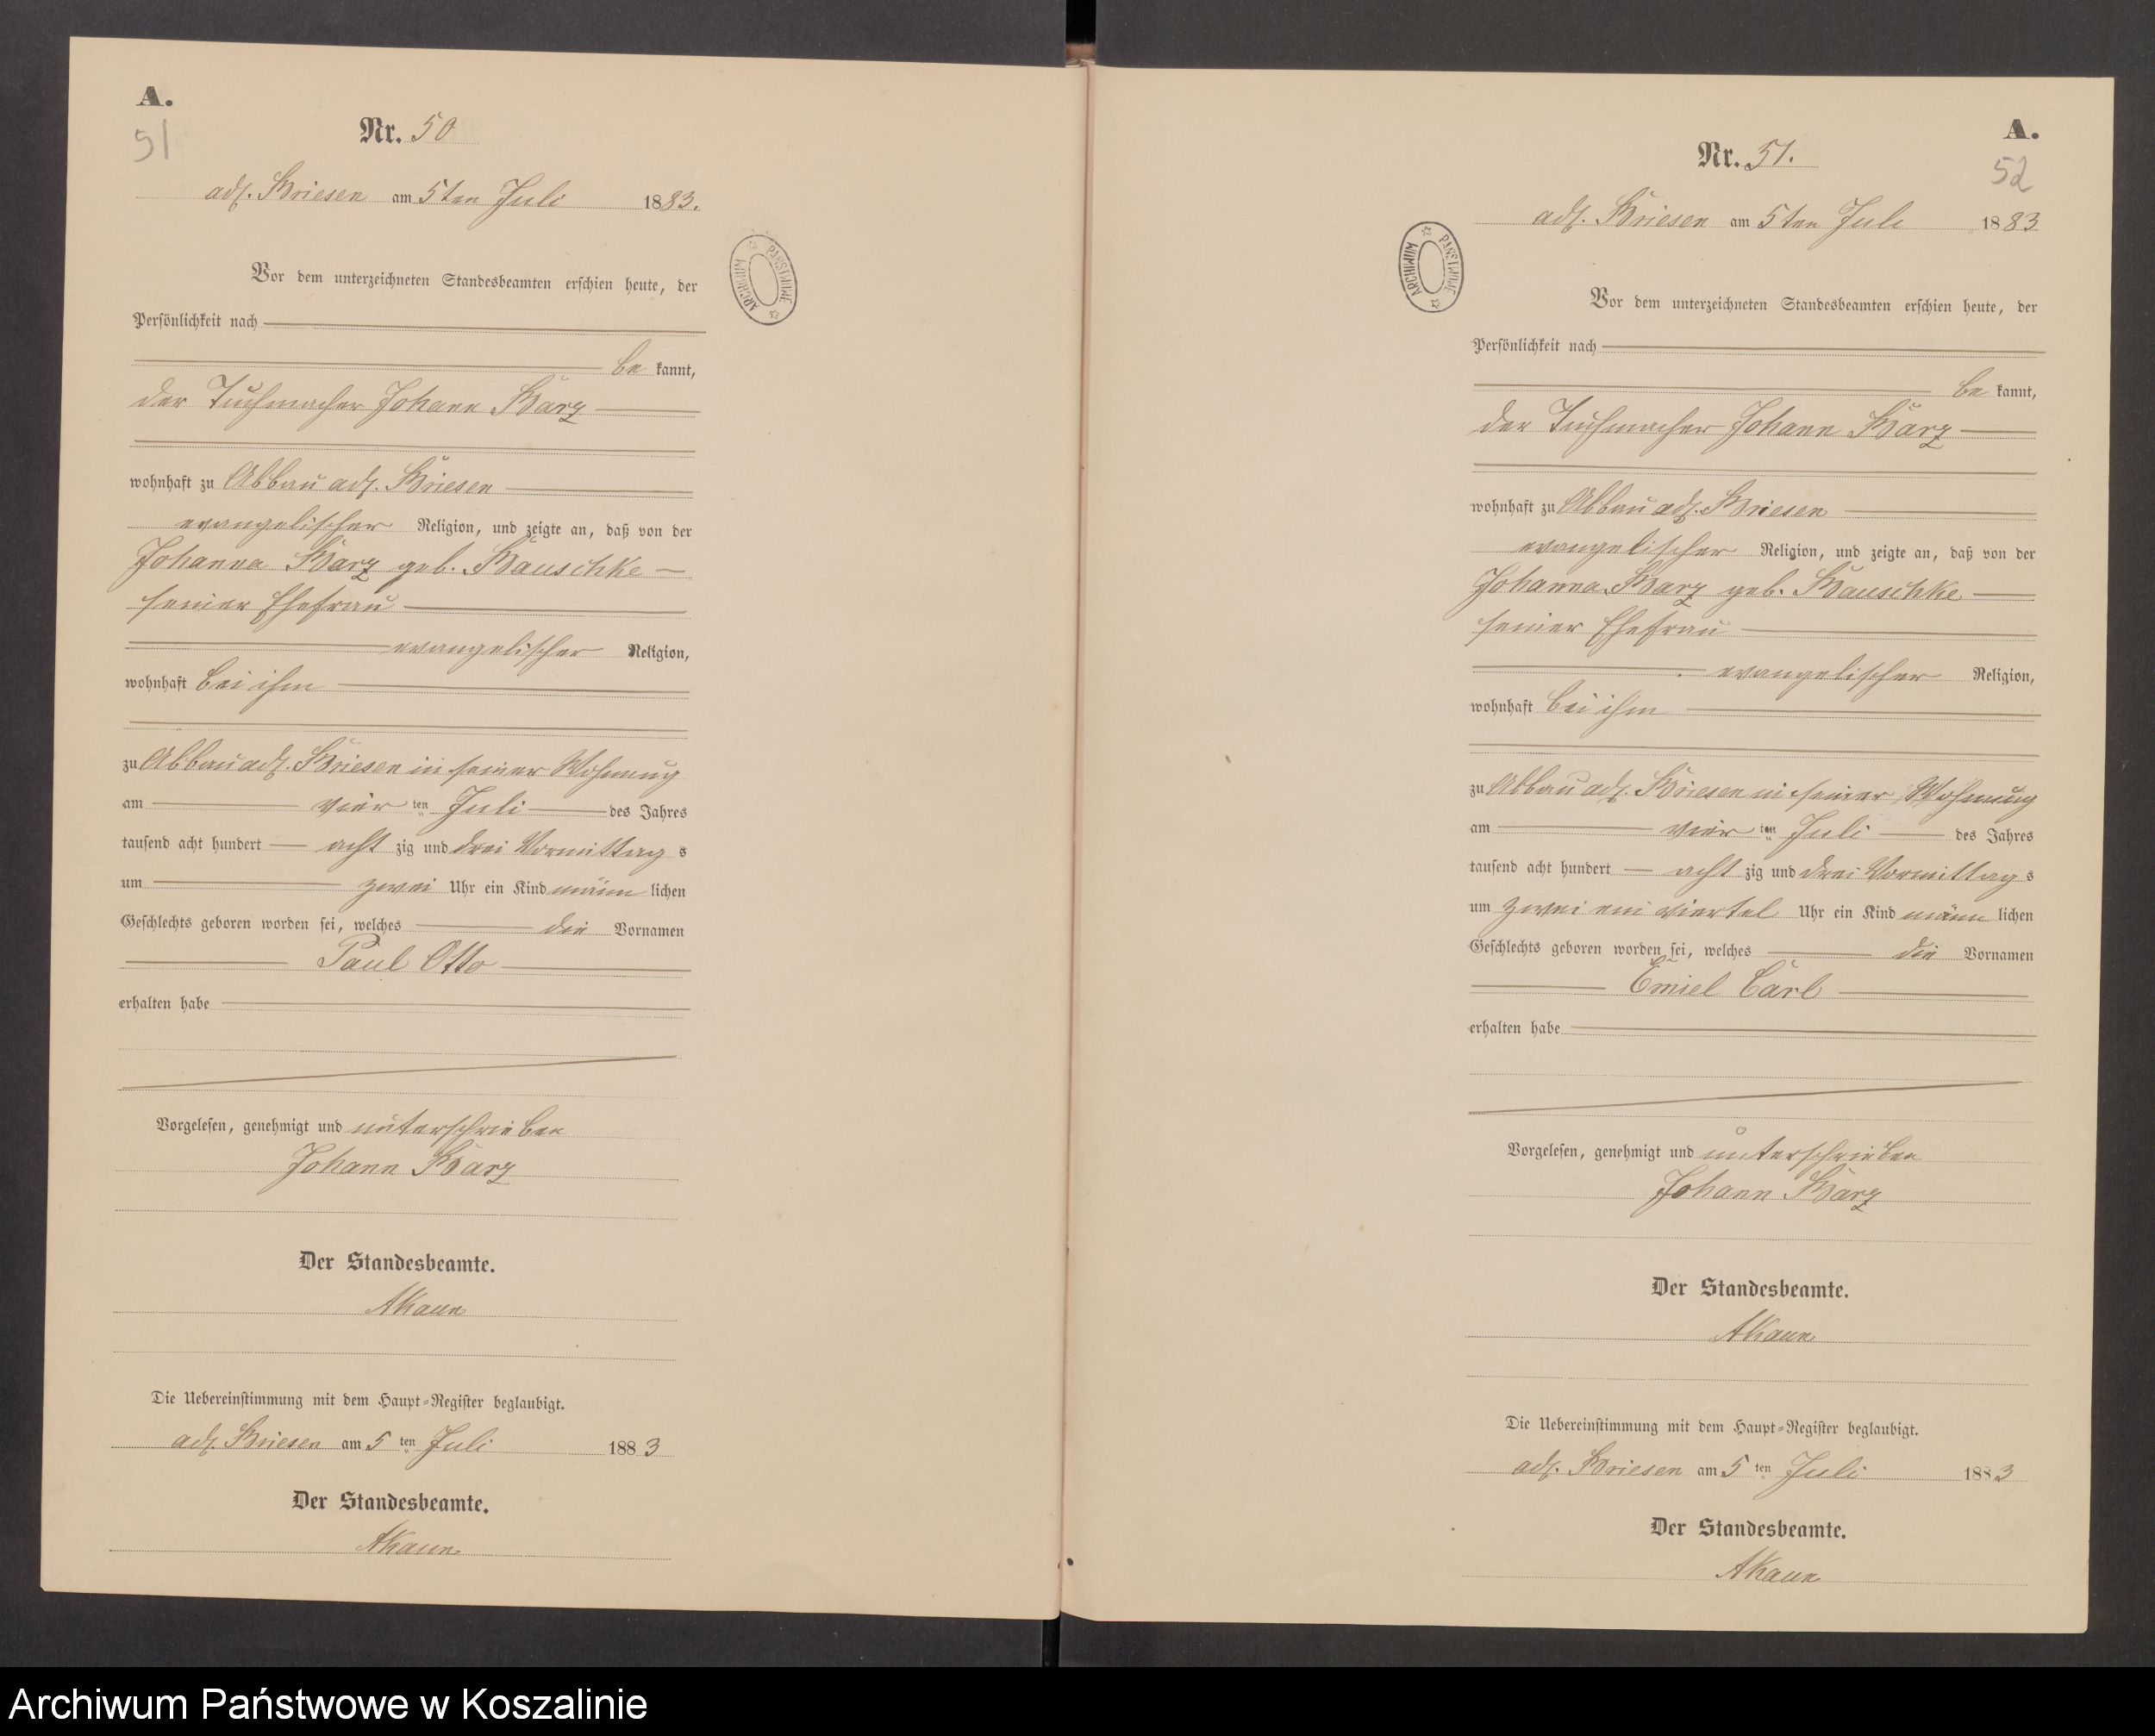 A.
51
Nr. 50
adl. Briesen am 5ten Juli 1883.
Vor dem unterzeichneten Standesbeamten erschien heute, der
Persönlichkeit nach
be kannt,
der Tuchmacher Johann Barz
wohnhaft zu Abbau adl. Briesen
evangelischer Religion, und zeigte an, daß von der
Johanna Barz geb. Bauschke
seiner Ehefrau
evangelischer Religion,
wohnhaft bei ihm
zu Abbau adl. Briesen in seiner Wohnung
am vier ten Juli des Jahres
tausend acht hundert acht zig und drei Vormittag s
um zwei Uhr ein Kind männ lichen
Geschlechts geboren worden sei, welches die Vornamen
Paul Otto
erhalten habe
Vorgelesen, genehmigt und unterschrieben
Johann Barz
Der Standesbeamte.
AKaun
Die Uebereinstimmung mit dem Haupt-Register beglaubigt.
adl. Briesen am 5 ten Juli 1883
Der Standesbeamte.
AKaun
ARCHIWUM PAŃSTWOWE
A.
52
Nr. 51.
adl. Briesen am 5ten Juli 1883
Vor dem unterzeichneten Standesbeamten erschien heute, der
Persönlichkeit nach
be kannt,
der Tuchmacher Johann Barz
wohnhaft zu Abbau adl. Briesen
evangelischer Religion, und zeigte an, daß von der
Johanna Barz geb. Bauschke
seiner Ehefrau
evangelischer Religion,
wohnhaft bei ihm
zu Abbau adl. Briesen in seiner Wohnung
am vier ten Juli des Jahres
tausend acht hundert acht zig und drei Vormittag s
um zwei ein viertel Uhr ein Kind männ lichen
Geschlechts geboren worden sei, welches die Vornamen
Emiel Carl
erhalten habe
Vorgelesen, genehmigt und unterschrieben
Johann Barz
Der Standesbeamte.
AKaun
Die Uebereinstimmung mit dem Haupt-Register beglaubigt.
adl. Briesen am 5 ten Juli 1883
Der Standesbeamte.
AKaun
ARCHIWUM PAŃSTWOWE
Archiwum Państwowe w Koszalinie